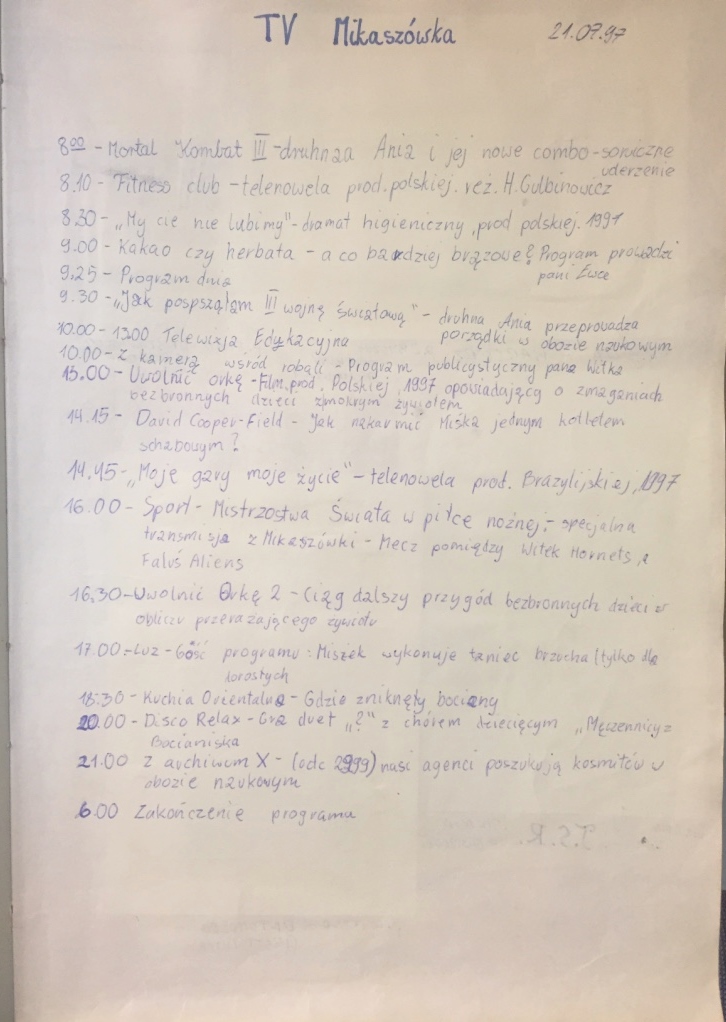 TV Mikaszówska 21.07.97
8⁰⁰ - Mortal Kombat III - druhnza Ania i jej nowe combo-soniczne
uderzenie
8.10 - Fitness club - telenowela prod. polskiej. reż. H. Gulbinowicz
8.30 - „My cie nie lubimy" - dramat higieniczny, prod polskiej. 1997
9.00 - Kakao czy herbata - a co bardziej brązowe? Program prowadzi
pani Ewce
9.25 - Program dnia
9.30 - „Jak pospsząłam III wojnę Światową" - druhna Ania przeprowadza
porządki w obozie naukowym
10.00 - 1300 Telewizja Edykacyjna
10.00 - Z kamerą wśród robali - Program publicystyczny pana Witka
13.00 - Uwolnić orkę - Film, prod. Polskiej, 1997 opowiadającą o zmaganiach
bezbronnych dzieci zmokrym żywiołem
14.15 - David Cooper-Field - Jak nakarmić Miśka jednym kotletem
schabowym?
14.45 - „Moje gary moje życie" - telenowela prod. Brazylijskiej, 1997
16.00 - Sport - Mistrzostwa Świata w piłce nożnej - specjalna
transmisja z Mikaszówki - Mecz pomiędzy Witek Hornets, a
Faluś Aliens
16.30 - Uwolnić Orkę 2 - Ciąg dalszy przygód bezbronnych dzieci w
obliczu przerażającego żywiołu
17.00 - Luz - Gość programu: Miszek wykonuje taniec brzucha (tylko dla
dorosłych
18.30 - Kuchia Orientalna - Gdzie zniknęły bociany
20.00 - Disco Relax - Gra duet „?" z chórem dziecięcym „Męczennicy z
Bocianiska
21.00 Z archiwum X - (odc 2999) nasi agenci poszukują kosmitów w
obozie naukowym
6.00 Zakończenie programu